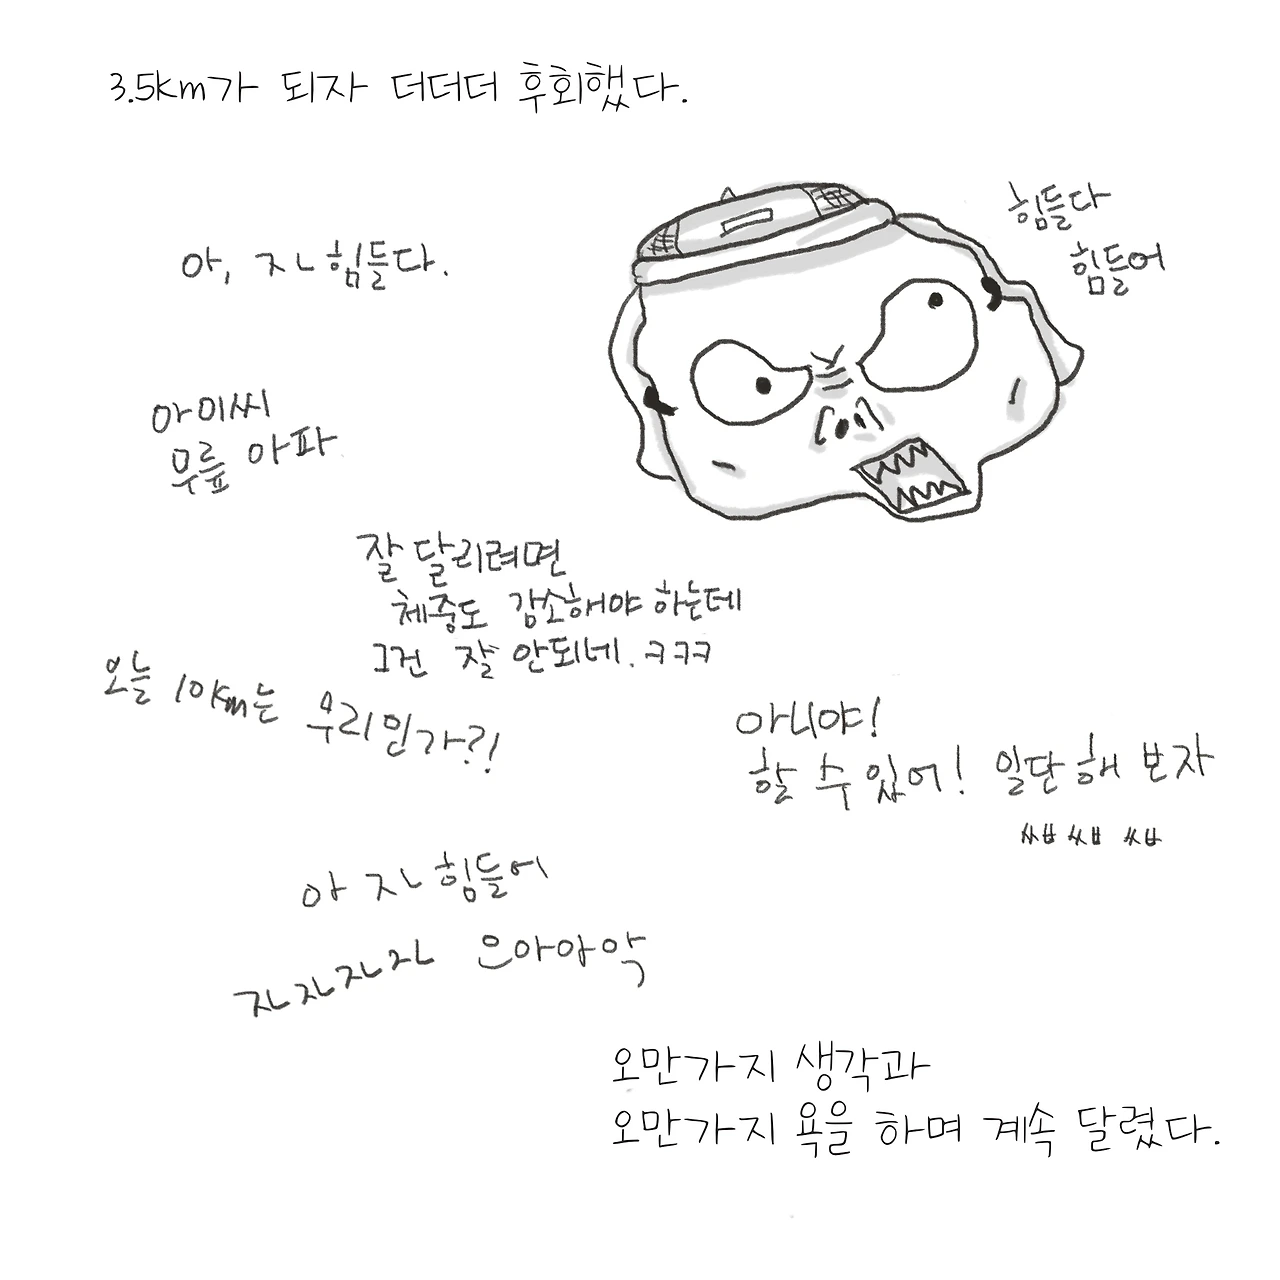 3.5km가 되자 더더더 후회했다.
힘들다
힘들어
아, ㅈㄴ 힘들다.
아이씨
무릎 아파
잘 달리려면
체중도 감소해야 하는데
그건 잘 안되네. ㅋㅋㅋ
오늘 10km는 무리인가?!
아니야!
할 수 있어! 일단 해 보자
ㅆㅂ ㅆㅂ ㅆㅂ
아 ㅈㄴ 힘들어
ㅈㄴㅈㄴㅈㄴㅈㄴ 으아아악
오만가지 생각과
오만가지 욕을 하며 계속 달렸다.